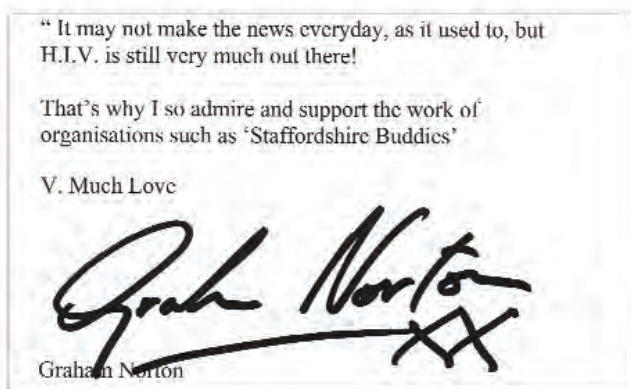 “ It may not make the news everyday, as it used to, but
H.I.V. is still very much out there!
That’s why I so admire and support the work of
organisations such as ‘Staffordshire Buddies’
V. Much Love
Graham Norton
XX
Graham Norton